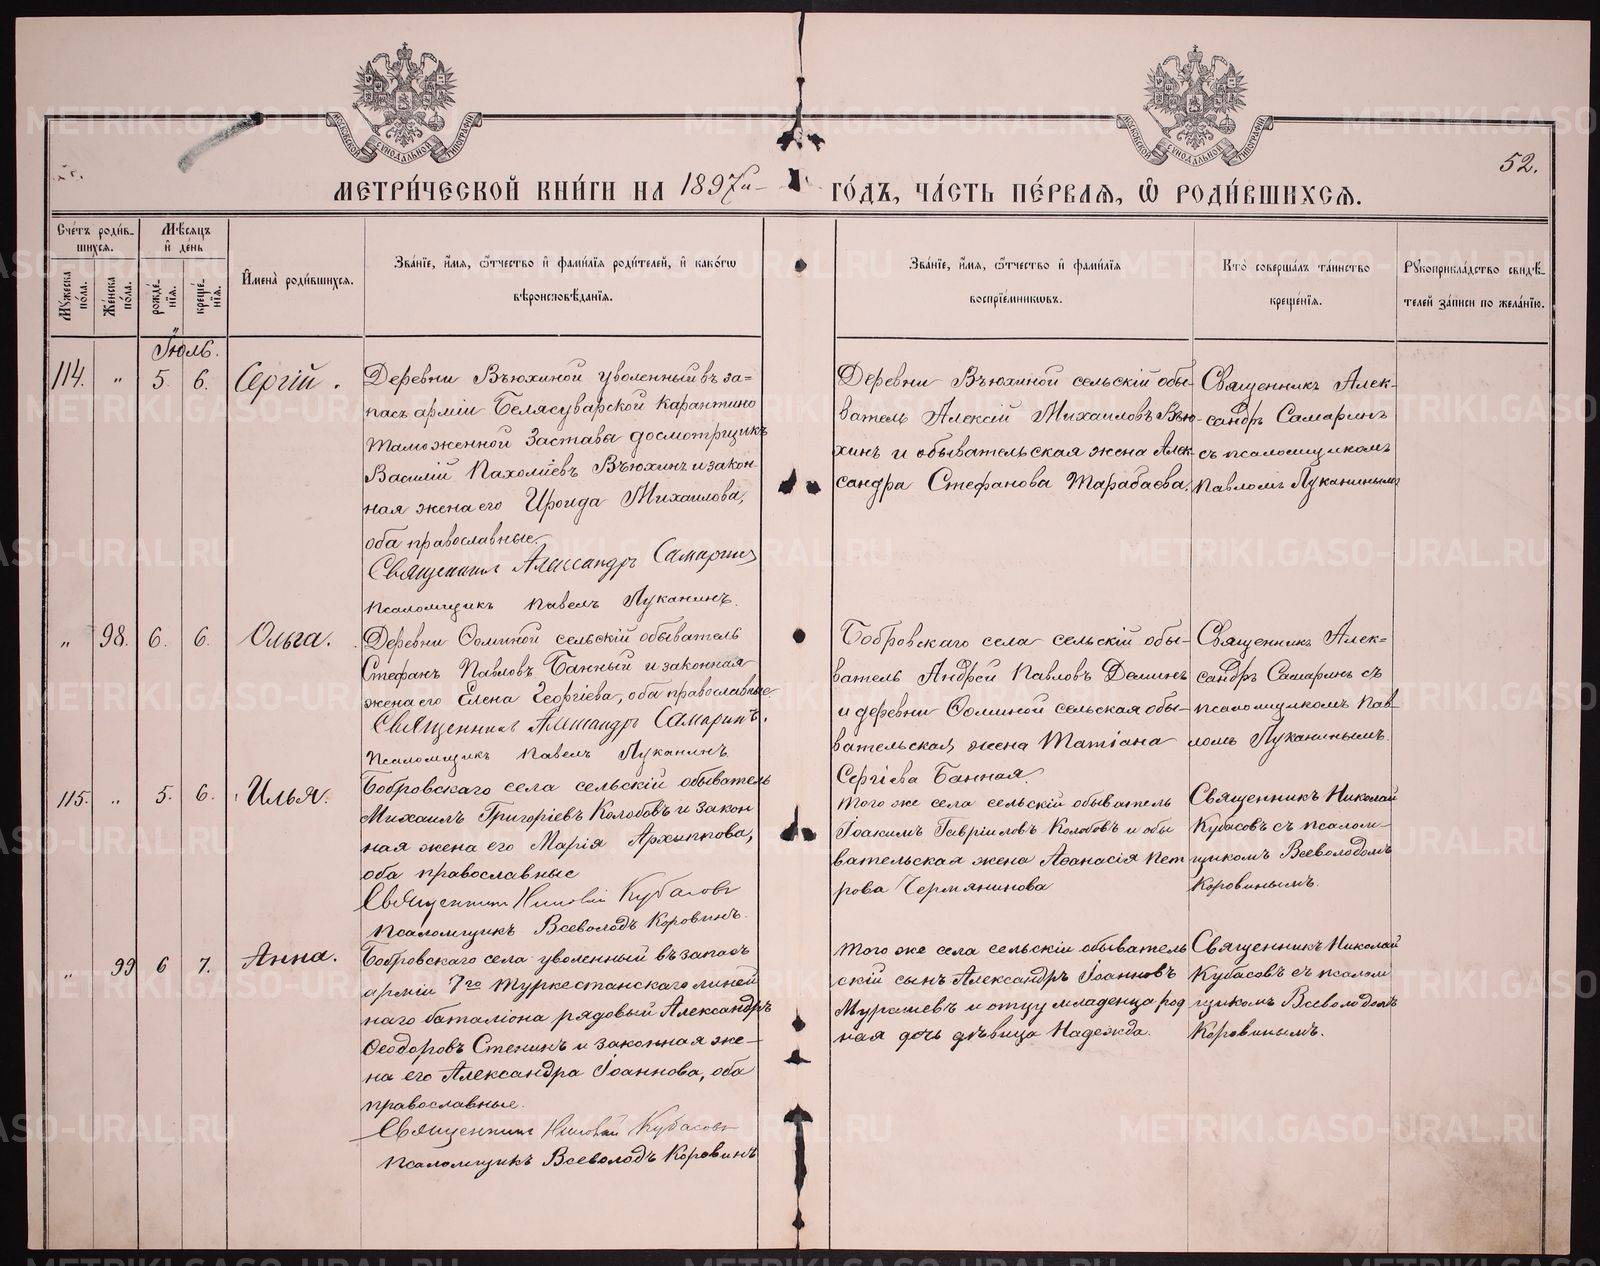 МЕТРИ́ЧЕСКОЙ КНИ́ГИ НА 1897й
ГО́ДЪ, ЧА́СТЬ ПЕ́РВАѦ, Ѡ҆ РОДИ́ВШИХСѦ.
52.
Сче́тъ роди́в-
шихсѧ.
Мꙋ́жеска
по́ла.
Же́нска
по́ла.
Мѣ́сѧцъ
и҆ де́нь
рожде́-
нїѧ.
креще́-
нїѧ.
И҆мена̀ роди́вшихсѧ.
Зва́нїе, и҆́мѧ, ѻ҆́тчество и҆ фами́лїѧ роди́телей, и҆ како́гѡ
вѣроисповѣ́данїѧ.
Зва́нїе, и҆́мѧ, ѻ҆́тчество и҆ фами́лїѧ
воспрїе́мникѡвъ.
Кто̀ соверша́лъ та́инство
креще́нїѧ.
Рꙋкоприкла́дство свидѣ́-
телей за́писи по жела́нїю.
Іюль.
114. „ 5. 6. Сергій.
Деревни Вьюхиной уволенный въ за=
пасъ арміи Белясуварской карантино
таможенной заставы досмотрщикъ
Василій Пахоміевъ Вьюхинъ и закон-
ная жена его Ираида Михаилова,
оба православные.
Священникъ Александръ Самаринъ
Псаломщикъ Павелъ Луканинъ.
Деревни Вьюхиной сельскій обы-
ватель Алексій Михаиловъ Вью-
хинъ и обывательская жена Алек-
сандра Стефанова Тарабаева.
Священникъ Алек-
сандръ Самаринъ
съ псаломщикомъ
Павломъ Луканинымъ
„ 98. 6. 6. Ольга.
Деревни Ѳоминой сельскій обыватель
Стефанъ Павловъ Банный и законная
жена его Елена Георгіева, оба православные
Священникъ Александръ Самаринъ.
Псаломщикъ Павелъ Луканинъ.
Бобровскаго села сельскій обы-
ватель Андрей Павловъ Деминъ
и деревни Ѳоминой сельская обы-
вательская жена Татіана
Сергіева Банная.
Священникъ Алек=
сандръ Самаринъ съ
псаломщикомъ Пав-
ломъ Луканинымъ.
115. „ 5. 6. Илья.
Бобровскаго села сельскій обыватель
Михаилъ Григоріевъ Колобовъ и закон
ная жена его Марія Архиппова,
оба православные
Священникъ Николай Кубасовъ
Псаломщикъ Всеволодъ Коровинъ.
Того же села сельскій обыватель
Іоакимъ Гавріиловъ Колобовъ и обы
вательская жена Аѳанасія Пет
рова Чермянинова
Священникъ Николай
Кубасовъ съ псалом-
щикомъ Всеволодомъ
Коровинымъ.
„ 99 6 7. Анна.
Бобровскаго села уволенный въ запасъ
арміи 7го Туркестанскаго линей
наго баталіона рядовый Александръ
Ѳеодоровъ Стенинъ и законная же-
на его Александра Іоаннова, оба
православные.
Священникъ Николай Кубасовъ
Псаломщикъ Всеволодъ Коровинъ
Того же села сельскій обыватель
скій сынъ Александръ Іоанновъ
Мурашевъ и отцу младенца род
ная дочь дѣвица Надежда.
Священникъ Николай
Кубасовъ съ псалом
щикомъ Всеволодомъ
Коровинымъ.
METRIKI.GASO-URAL.RU